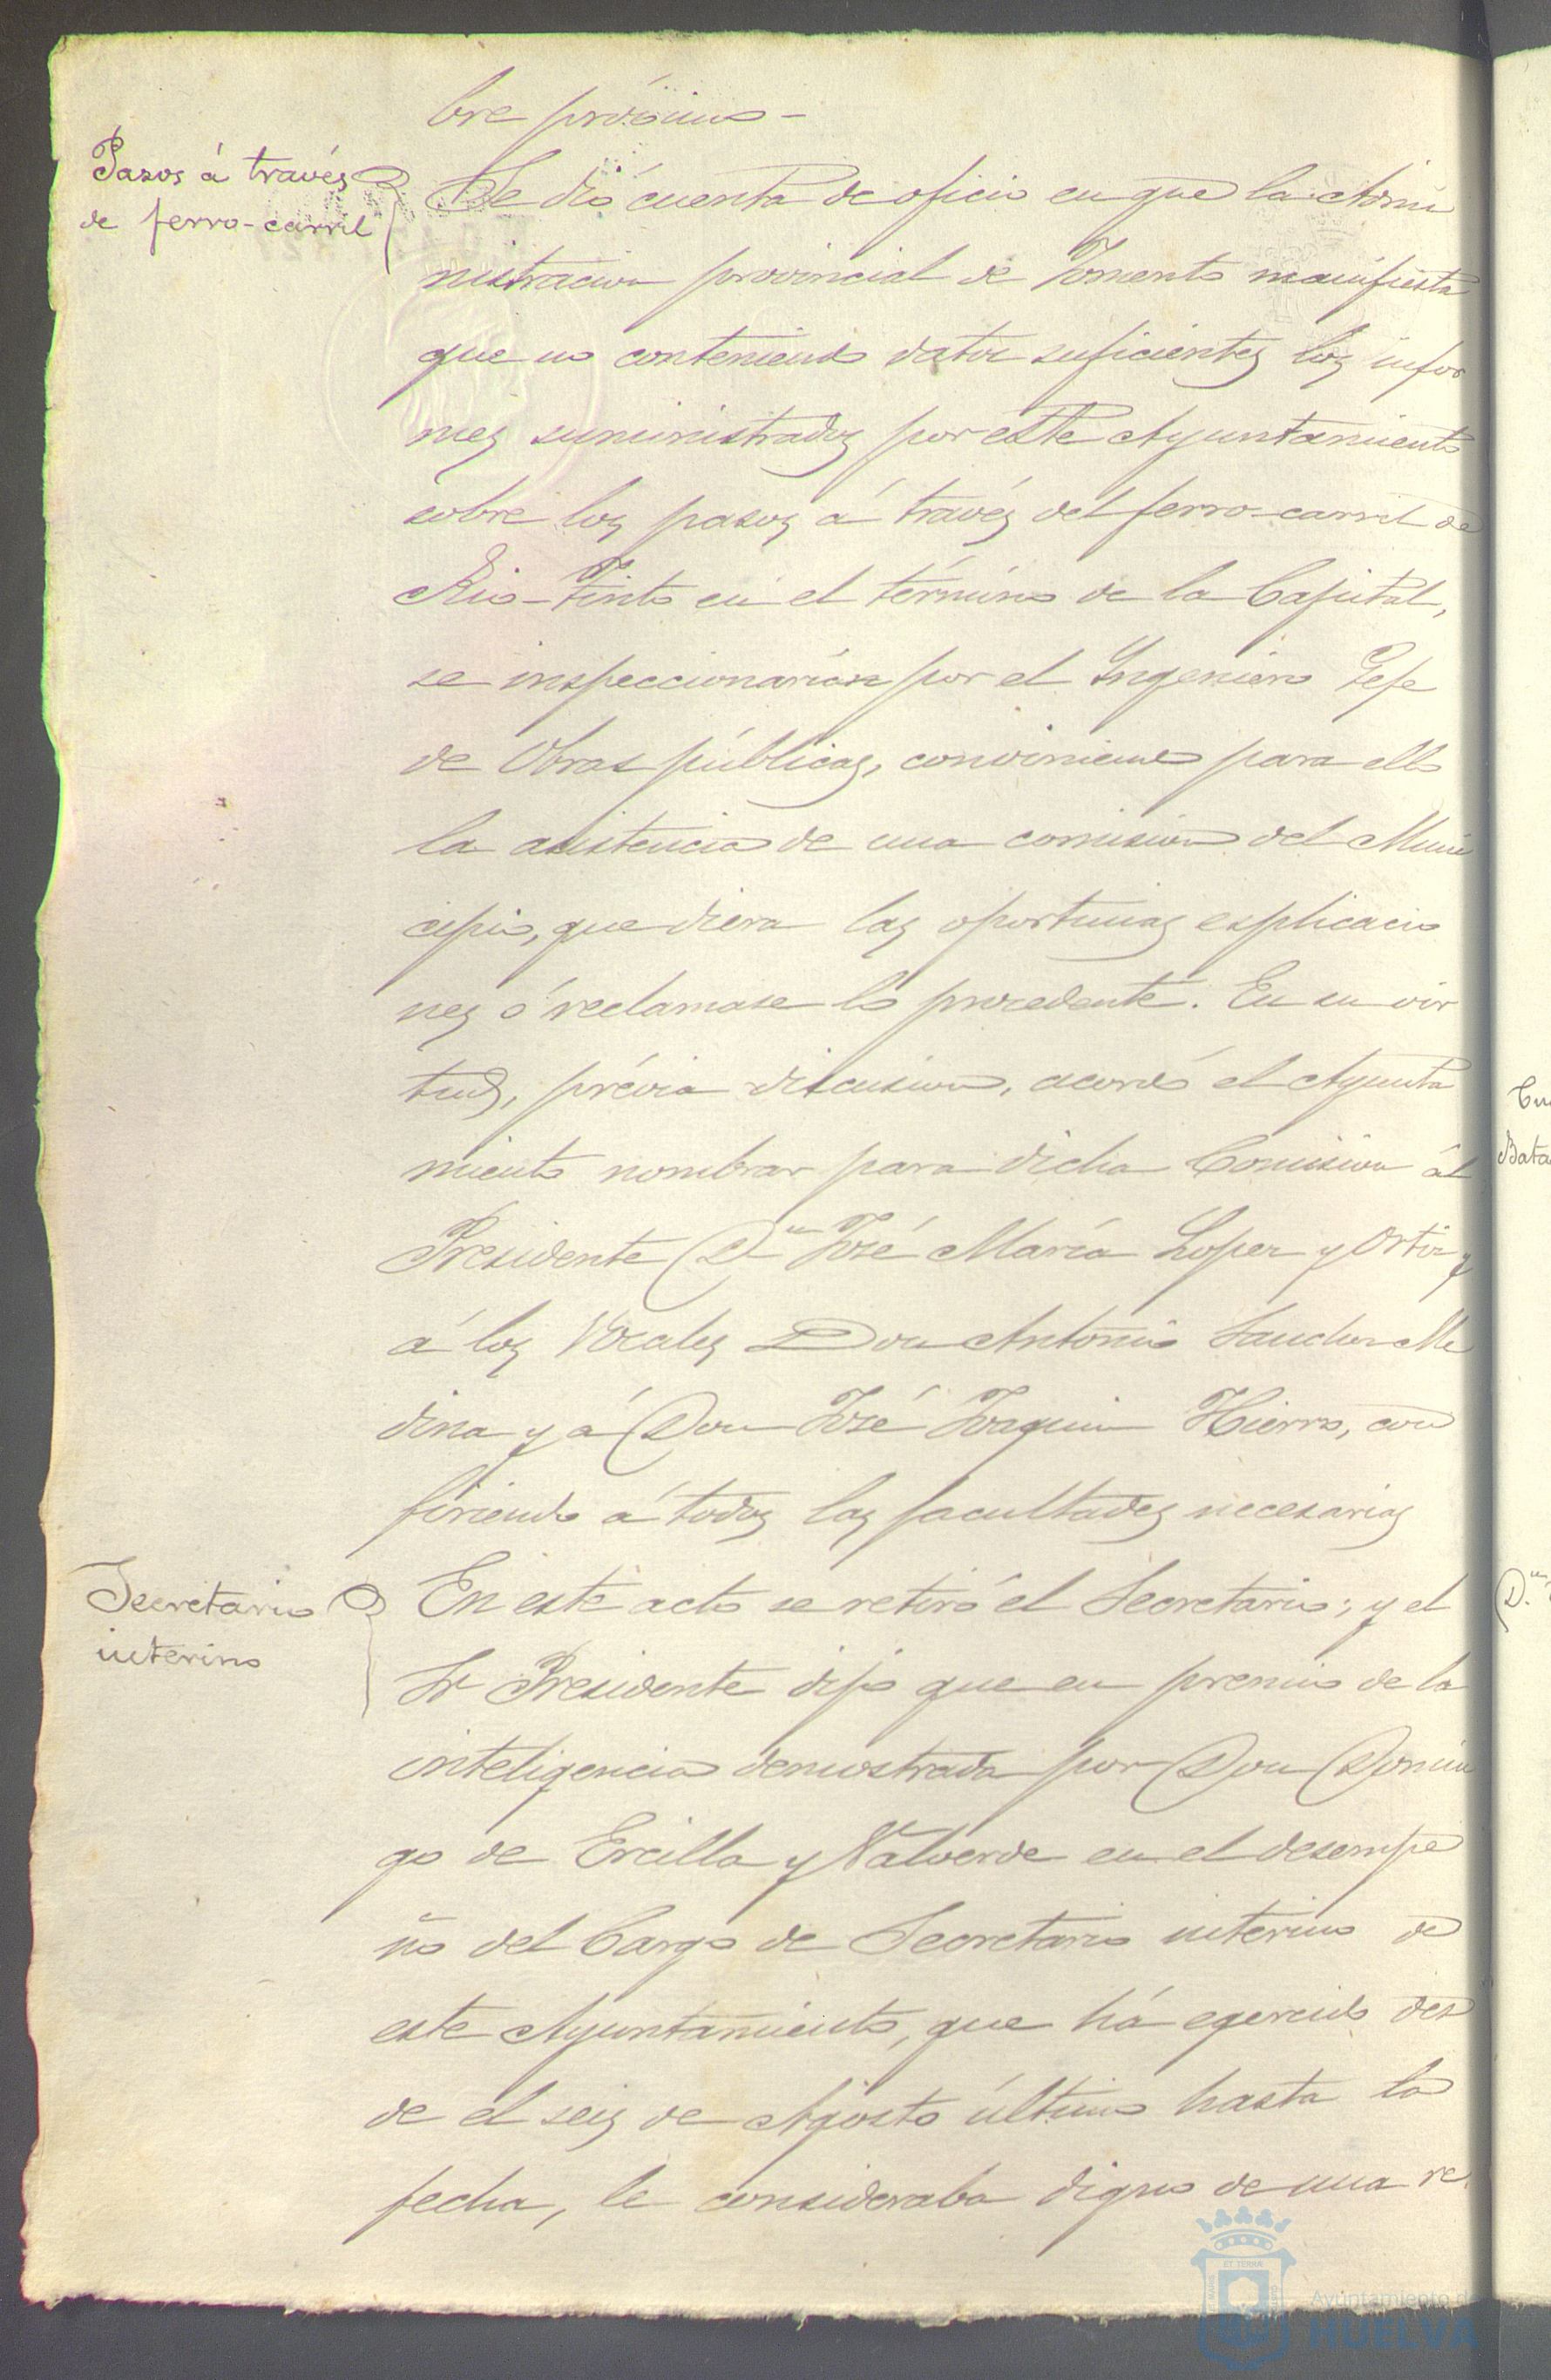 bre próximo-
Pasos á través
de ferro-carril
Se dió cuenta de oficio en que la Admi
nistracion provincial de Fomento manifiesta
que no conteniendo datos suficientes los infor
mes suministrados por este Ayuntamiento
sobre los pasos á través del ferro-carril de
Rio-Tinto en el término de la Capital,
se inspeccionarían por el Ingeniero Gefe
de Obras públicas, conviniendo para ello
la asistencia de una comision del Muni
cipio, que diera las oportunas esplicacio
nes ó reclamase lo procedente. En su vir
tud, prévia discusion, acordó el Ayunta
miento nombrar para dicha Comision al
Presidente Dn José María Lopez y Ortiz y
á los Vocales Don Antonio Sanchez Me
dina y á Don José Joaquin Hierro, con
firiendo á todos las facultades necesarias
Secretario
interino
En este acto se retiró el Secretario; y el
Sr Presidente dijo que en premio de la
inteligencia demostrada por Don Domin
go de Ercilla y Valverde en el desempe
ño del Cargo de Secretario interino de
este Ayuntamiento, que há egercido des
de el seis de Agosto último hasta la
fecha, le consideraba digno de una re
Bata
Dn
Ayuntamiento de
HUELVA